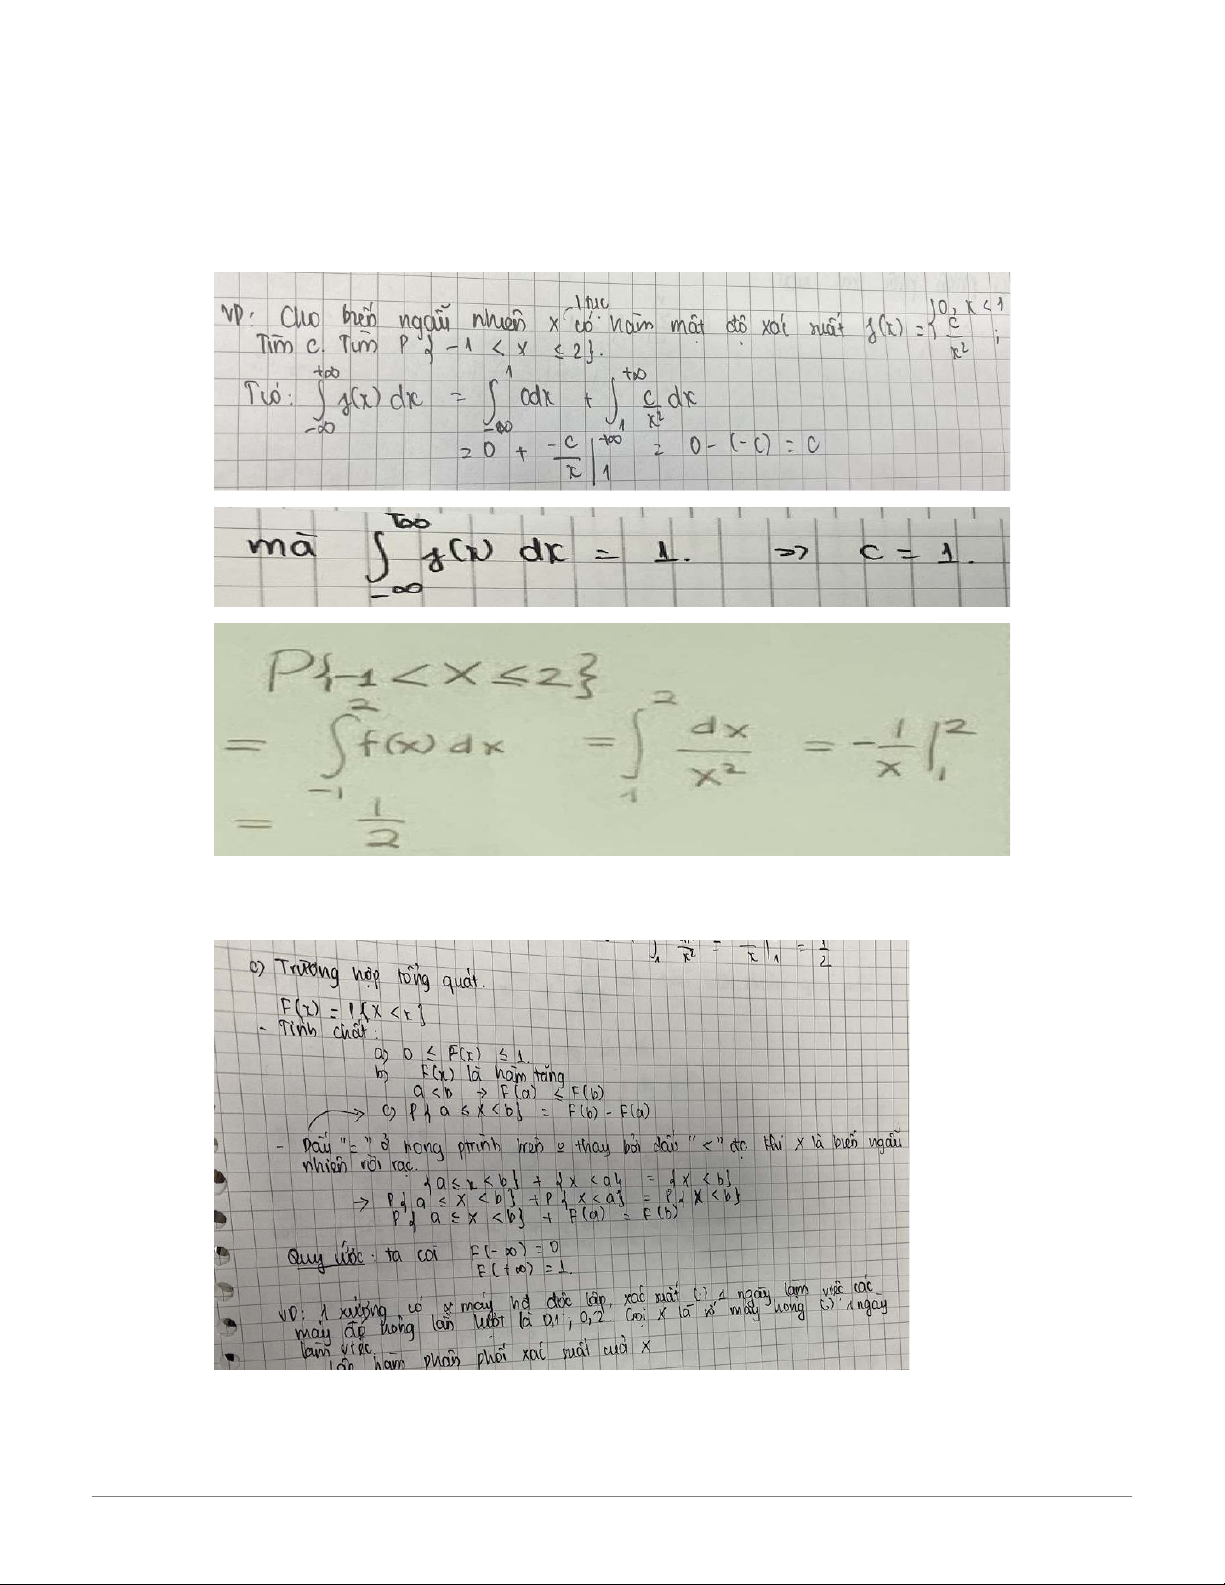 VD: Cho biến ngẫu nhiên X ltục có hàm mật độ xác suất f(x) = { 0, x < 1
c/x² ;
Tìm c. Tìm P{ -1 < X ≤ 2}.
Tcó: ∫_{-∞}^{+∞} f(x) dx = ∫_{-∞}^{1} 0dx + ∫_{1}^{+∞} c/x² dx
= 0 + -c/x |_{1}^{+∞} = 0 - (-c) = c
mà ∫_{-∞}^{+∞} f(x) dx = 1. => c = 1.
P{-1 < X ≤ 2}
= ∫_{-1}^{2} f(x) dx = ∫_{1}^{2} dx/x² = -1/x |_{1}^{2}
= 1/2
∫_{1} x² = x |_{1} = 1/2
c) Trường hợp tổng quát.
F(x) = P{X < x}
- Tính chất:
a) 0 ≤ F(x) ≤ 1.
b) F(x) là hàm tăng
a < b → F(a) ≤ F(b)
c) P{ a ≤ X < b} = F(b) - F(a)
- Dấu "=" ở trong ptrình trên thay bởi dấu "<" đc khi X là biến ngẫu
nhiên rời rạc.
{a ≤ x < b} + {x < a} = {x < b}
→ P{ a ≤ X < b} + P{ X < a} = P{ X < b}
P{ a ≤ X < b} + F(a) = F(b)
Quy ước: ta coi F(-∞) = 0
F(+∞) = 1.
VD: 1 xưởng có máy hđ độc lập, xác suất (.) 1 ngày làm việc các
máy đó hỏng lần lượt là 0,1 ; 0,2 Gọi X là số máy hỏng (.) 1 ngày
làm việc.
hàm phân phối xác suất của X